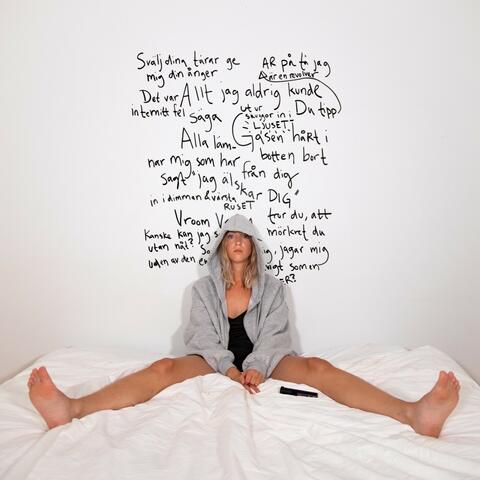 Svälj dina tårar ge
mig din ånger
AR på tå jag
är en revolver
Det var Allt jag aldrig kunde
internitt fel säga
ut ur
skuggor in i
LJUSET!
Du tipp
Alla läm- Gasen hårt i
nar mig som har botten bort
sagt "jag älskar DIG" från dig
in i dimman & värsta
RUSET
Vroom V
tror du, att
Kanske kan jag s mörkret du
utan nåt? So ig, jagar mig
uden av den e vigt som en
ER?